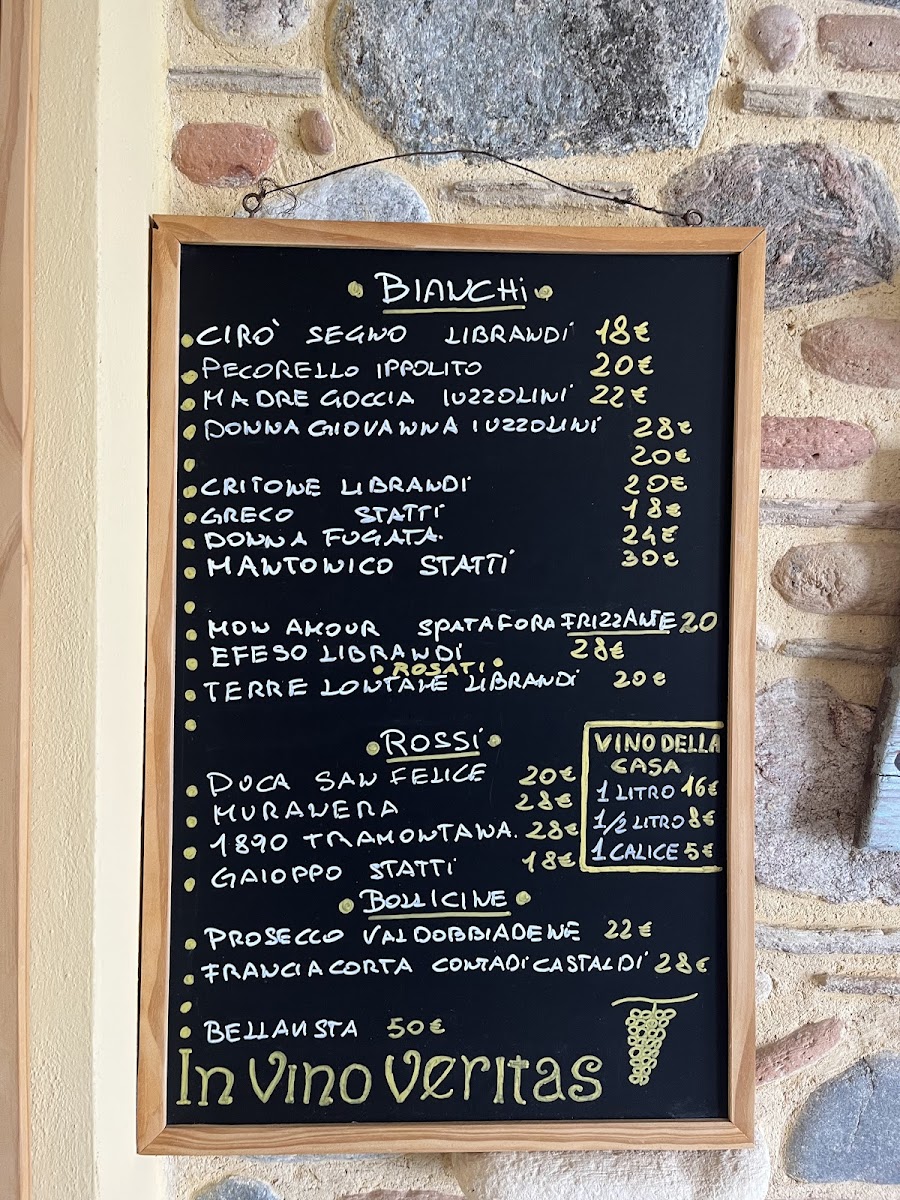 • BIANCHI •
• CIRÒ SEGNO LIBRANDI 18€
• PECORELLO IPPOLITO 20€
• MADRE GOCCIA IUZZOLINI 22€
• DONNA GIOVANNA IUZZOLINI 28€
• 20€
• CRITONE LIBRANDI 20€
• GRECO STATTI 18€
• DONNA FUGATA. 24€
• MANTONICO STATTI 30€
•
• MON AMOUR SPATAFORA FRIZZANTE 20
• EFESO LIBRANDI 28€
• ROSATI •
• TERRE LONTANE LIBRANDI 20€
•
• ROSSI •
• DUCA SAN FELICE 20€
• MURANERA 28€
• 1890 TRAMONTANA. 28€
• GAIOPPO STATTI 18€
VINO DELLA
CASA
1 LITRO 16€
1/2 LITRO 8€
1 CALICE 5€
• BOLLICINE •
• PROSECCO VALDOBBIADENE 22€
• FRANCIACORTA CONTADI CASTALDI 28€
•
• BELLAVISTA 50€
In Vino Veritas